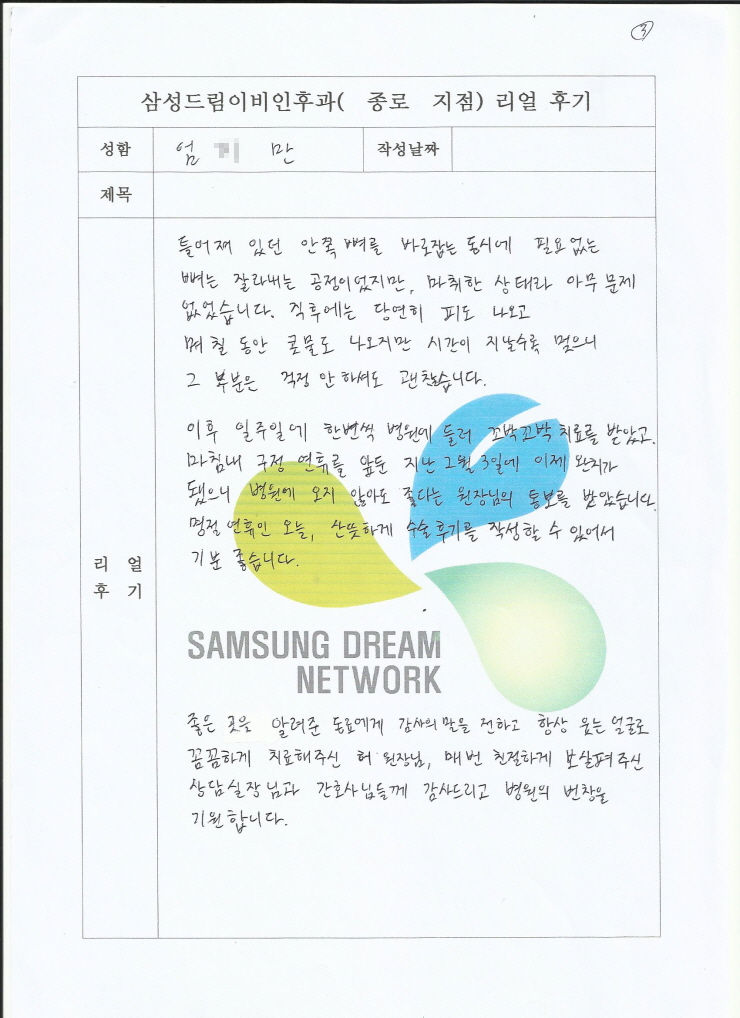 ③
삼성드림이비인후과( 종로 지점) 리얼 후기
성함 엄 만 작성날짜
제목
리 얼
후 기
틀어져 있던 안쪽 뼈를 바로잡는 동시에 필요없는
뼈는 잘라내는 공정이었지만, 마취한 상태라 아무 문제
없었습니다. 직후에는 당연히 피도 나오고
며칠 동안 콧물도 나오지만 시간이 지날수록 멎으니
그 부분은 걱정 안 하셔도 괜찮습니다.
이후 일주일에 한번씩 병원에 들러 꼬박꼬박 치료를 받았고,
마침내 구정 연휴를 앞둔 지난 2월 3일에 이제 완치가
됐으니 병원에 오지 않아도 좋다는 원장님의 통보를 받았습니다.
명절 연휴인 오늘, 산뜻하게 수술후기를 작성할 수 있어서
기분 좋습니다.
SAMSUNG DREAM
NETWORK
좋은 곳을 알려준 동료에게 감사의 말을 전하고 항상 웃는 얼굴로
꼼꼼하게 치료해주신 허 원장님, 매번 친절하게 보살펴주신
상담실장님과 간호사님들께 감사드리고 병원의 번창을
기원합니다.